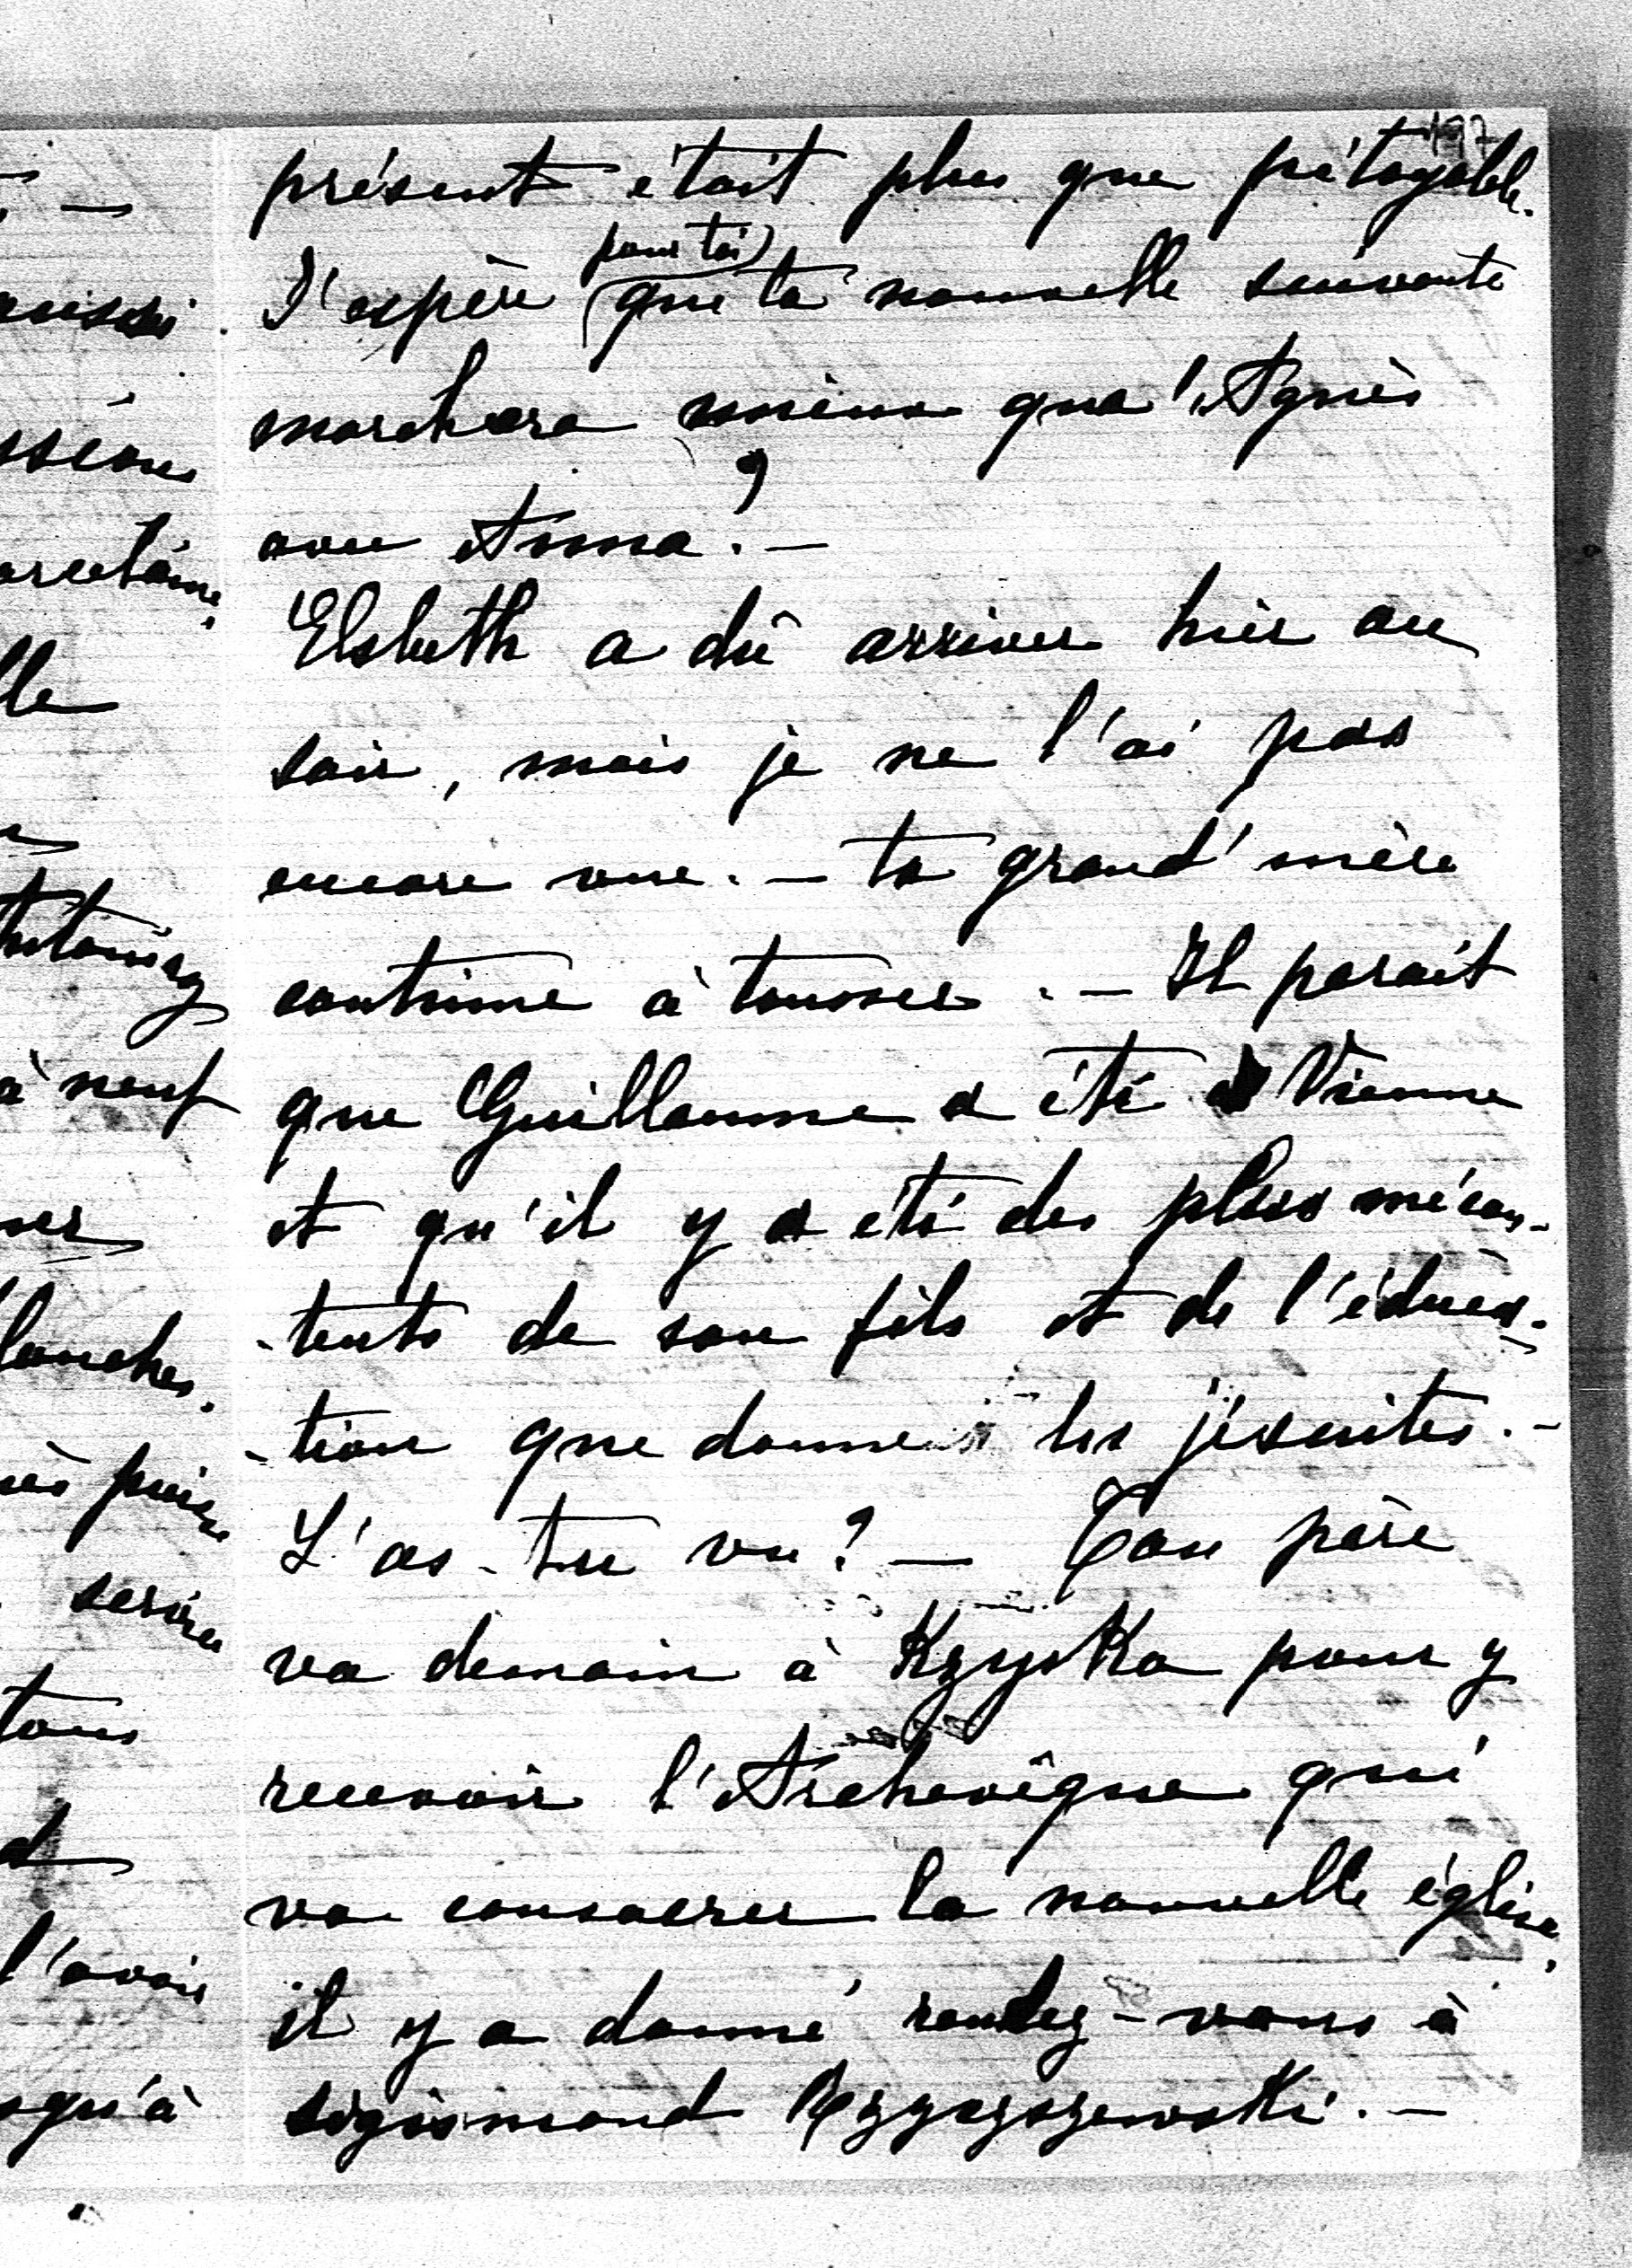 197
présent était plus que pitoyable.
pour toi)
J'espère (que ta nouvelle suivante
marchera mieux qu'Agnès
avec Anna ? —
Elsbeth a dû arriver hier au
soir, mais je ne l'ai pas
encore vue. — ta grand'mère
continue à tousser. — Il parait
que Guillaume a été à Vienne
et qu'il y a été des plus mécon-
-tents de son fils et de l'éduca-
-tion que donnent les jésuites. —
L'as-tu vu ? — Ton père
va demain à Kzyska pour y
recevoir l'Archevêque qui
va consacrer la nouvelle église,
il y a donné rendez-vous à
Sigismond —